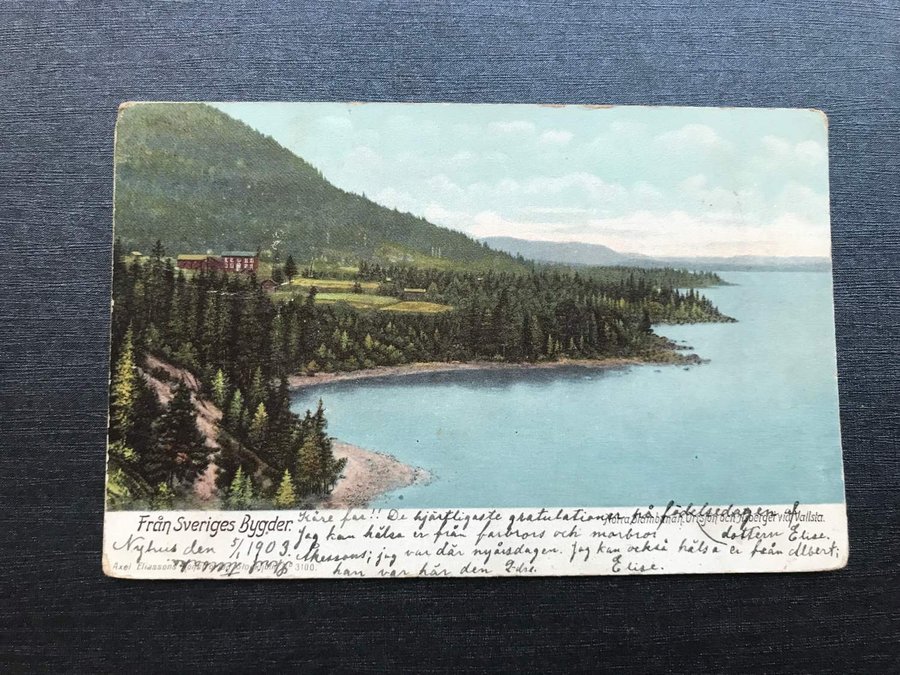 Från Sveriges Bygder.
Kära far!! De hjärtligaste gratulationer på födelsedagen af
Norra Stambanan, Orsjön och Åberget vid Vallsta.
dottern Elise.
Nyhus den 5/1 1903. Jag kan hälsa er från farbrors och morbror
Åkessons; jag var där nyårsdagen. Jag kan också hälsa er från Albert;
Axel Eliassons Konstförlag, Stockholm. № 3100.
han var här den 2dre. Elise.